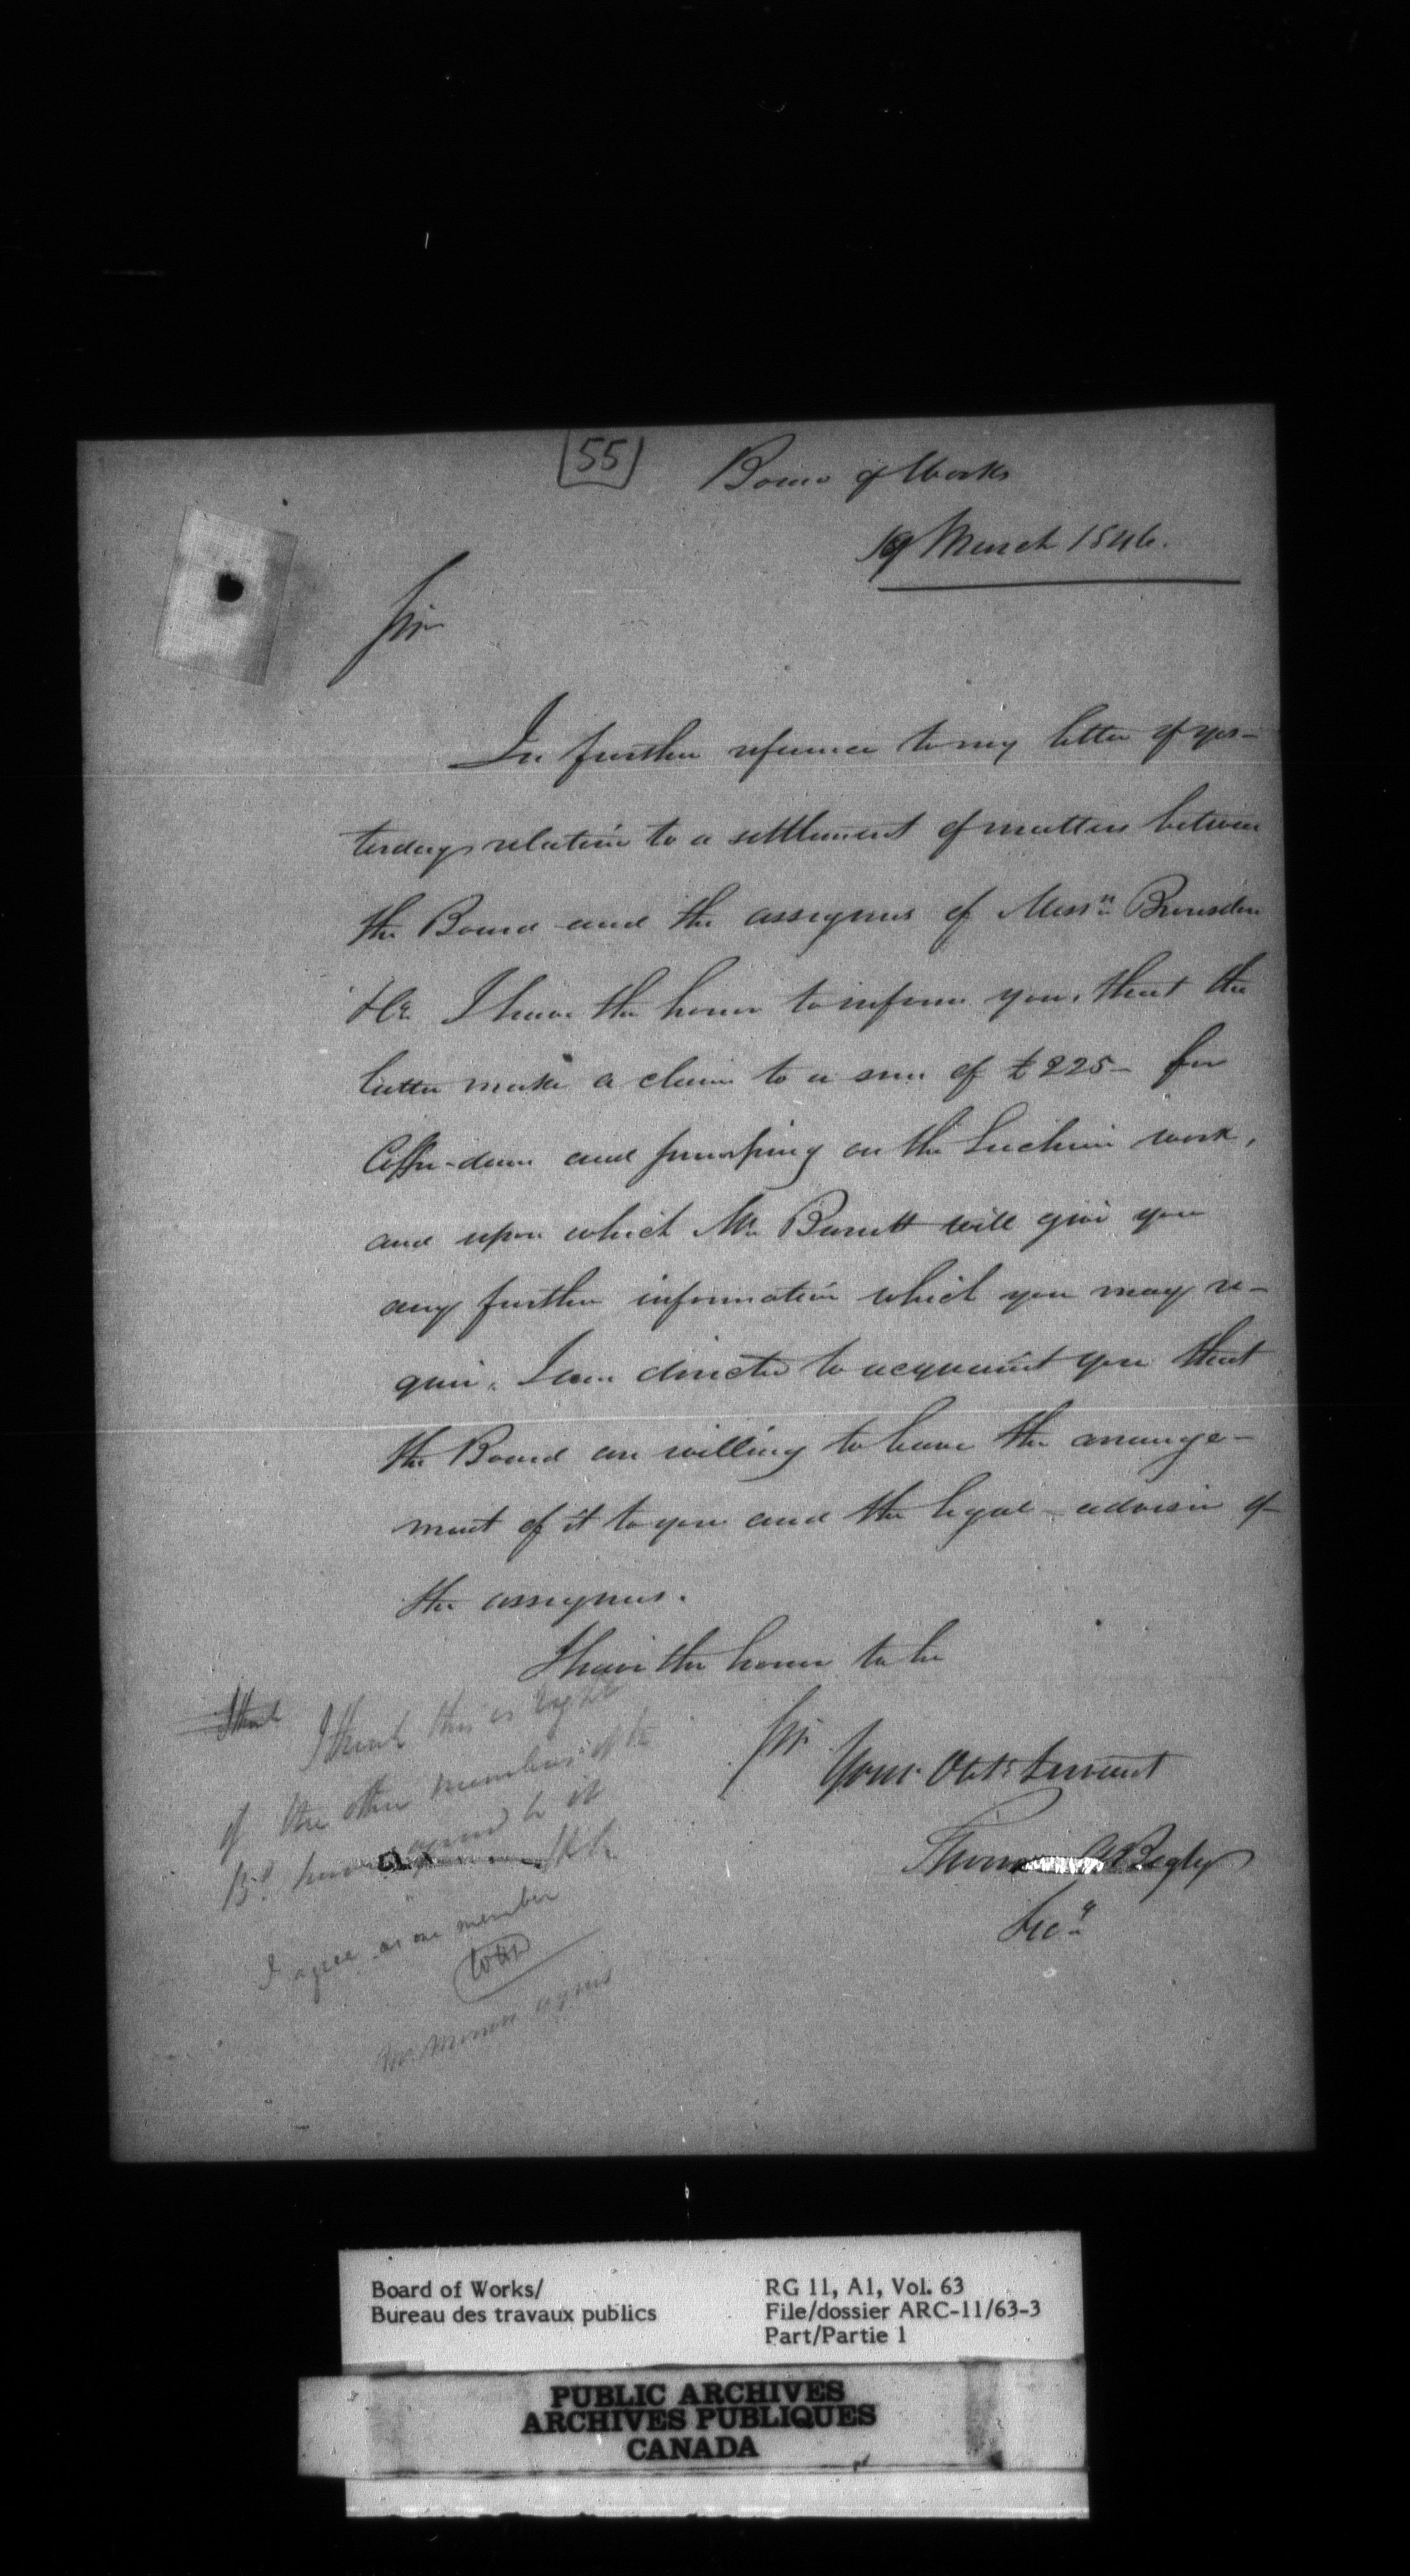 55
Board of Works
19 March 1846.
Sir
In further reference to my letter of yes-
terday relative to a settlement of matters between
the Board and the assignees of Mess.rs
&c. I have the honor to inform you, that the
latter make a claim to a sum of £225 - for
Coffer-dam and pumping on the Lachine work,
and upon which Mr. Barrett will give you
any further information which you may re-
quire. I am directed to acquaint you that
the Board are willing to leave the arrange-
ment of it to you and the legal-adviser of
the assignees.
I have the honor to be
Sir
Your Obt. Servant
Thomas A Begly
Secy
I think
I think this is right
if the other members of the
Bd. have agreed to it
I agree as one member
agrees
Board of Works/
Bureau des travaux publics
RG 11, A1, Vol. 63
File/dossier ARC-11/63-3
Part/Partie 1
PUBLIC ARCHIVES
ARCHIVES PUBLIQUES
CANADA